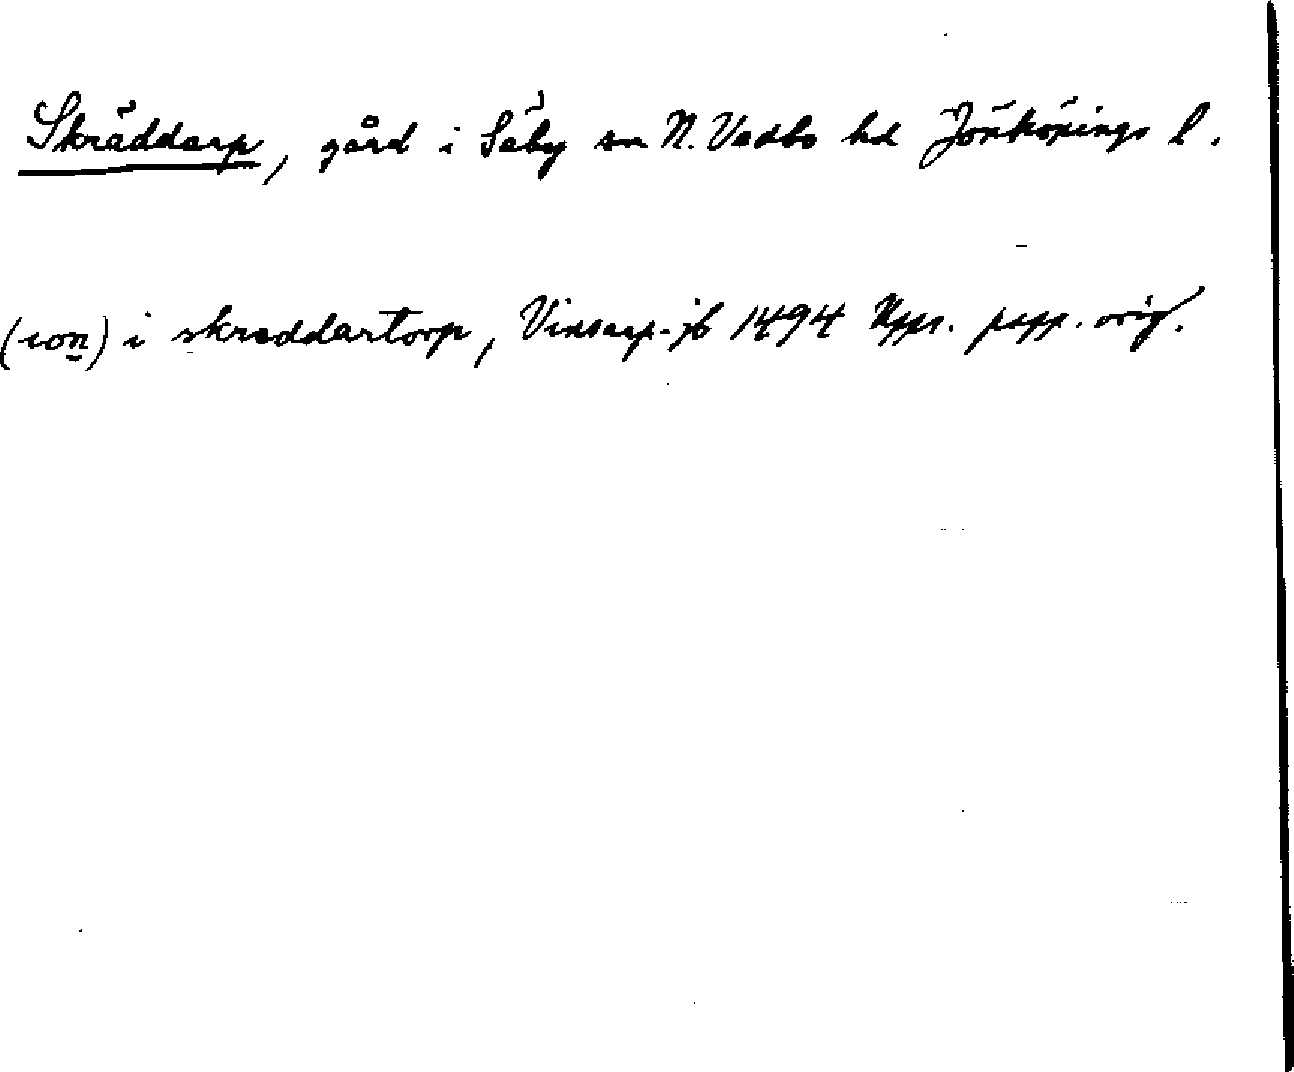 Skräddarp, gård i Säby sn N. Vedbo hd Jönköpings l.
(ion) i skreddartorp, Vinsarp-jb 1494 Upps. papp. orig.